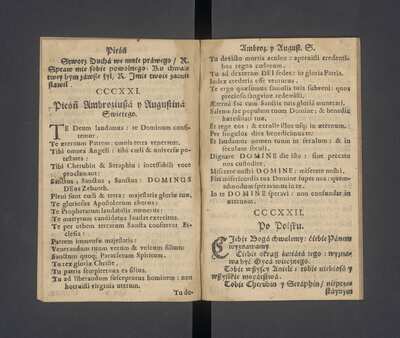 Pieśń
Stworz Ducha we mnie práwego / R.
Spraw mie sobie powolnego: Ku chwale
twey bym záwsze żył, R. Imie twoie zácnie
sławił.
CCCXXI.
Pieśń Ambroziuszá y Augustiná
Swietego.
TE Deum laudamus: te Dominum confi-
temur.
Te æternum Patrem: omnis terra veneratur.
Tibi omnes Angeli: tibi cæli & universæ po-
testates:
Tibi Cherubin & Seraphin: incessabili voce
proclamant:
Sanctus, Sanctus, Sanctus: DOMINUS
DEus Zebaoth.
Pleni sunt cæli & terra: majestatis gloriæ tuæ.
Te gloriosus Apostolorum chorus:
Te Prophetarum laudabilis numerus:
Te martyrum candidatus laudat exercitus.
Te per orbem terrarum Sancta confitetur Ec-
clesia:
Patrem immensæ majestatis:
Venerandum tuum verum & unicum filium:
Sanctum quoq; Paracletum Spiritum.
Tu rex gloriæ Christe,
Tu patris sempiternus es filius.
Tu ad liberandum suscepturus hominem: non
horruisti virginis uterum.
Tu de-
Ambroz. y August. S.
Tu devicto mortis aculeo: aperuisti credenti-
bus regna cælorum.
Tu ad dexteram DEI sedes: in gloria Patris.
Iudex crederis esse venturus.
Te ergo quæsumus famulis tuis subveni: quos
precioso sanguine redemisti.
Æterna fac cum Sanctis tuis gloria munerari.
Salvum fac populum tuum Domine: & benedic
hæreditati tuæ.
Et rege eos: & extolle illos usq; in æternum.
Per singulos dies benedicimus te:
Et laudamus nomen tuum in seculum: & in
seculum seculi.
Dignare DOMINE die isto: sine peccato
nos custodire.
Miserere nostri DOMINE: miserere nostri.
Fiat misericordia tua Domine super nos: quemad-
modum speravimus in te.
In te DOMINE speravi: non confundar in
æternum.
CCCXXII.
Po Polsku.
CIebie Bogá chwalemy: ciebie Pánem
wyznawamy.
Ciebie okrąg światá tego: wyzna-
wa być Oycá wiecznego.
Tobie wszyscy Anieli: tobie niebiosá y
wszystkie mocárstwá.
Tobie Cherubin y Seráphin / nieprze-
stáynym